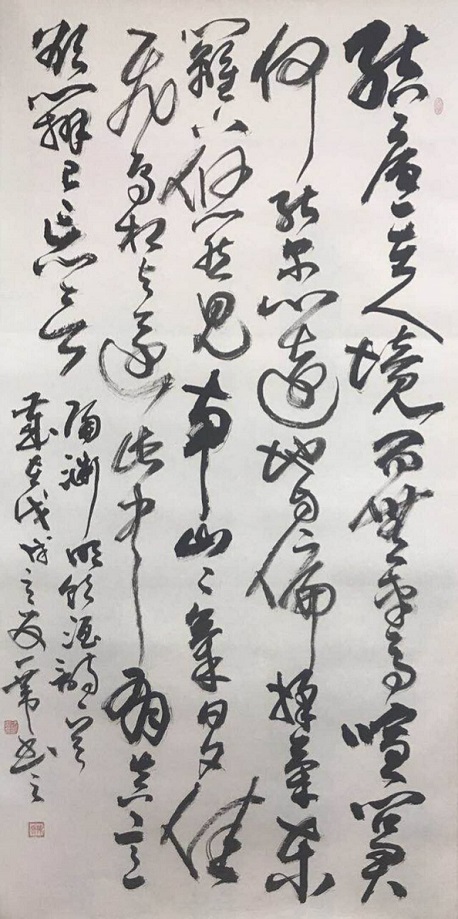 結廬在人境而無車馬喧問君
何能爾心遠地自偏採菊東
籬下悠然見南山〻氣日夕佳
飛鳥相與還此中有真意
欲辨已忘言
陶淵明飲酒詩一首
歲在戊戌之夏一葦書之